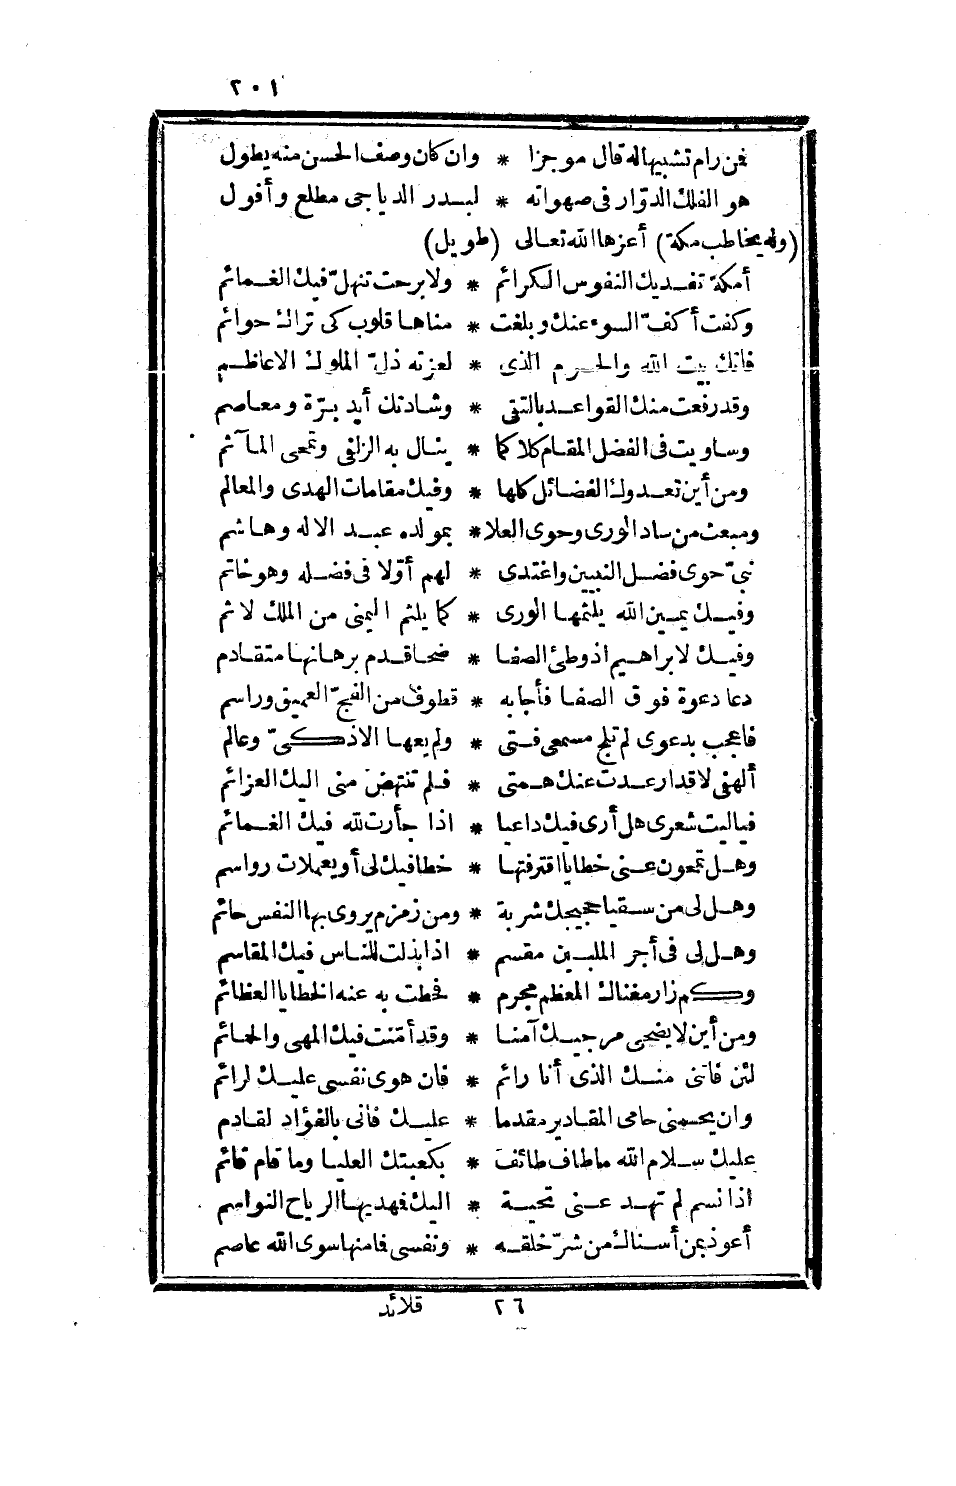 ٢٠١
فمن رام تشبيها له قال موجزا * وان كان وصف الحسن منه يطول
هو الفلك الدوّار فى صهواته * لبدر الدياجى مطلع وأفول
(وله يخاطب مكة) أعزها الله تعالى (طويل)
أمكة تفديك النفوس الكرائم * ولا برحت تنهلّ فيك الغمائم
وكفت أكفّ السوء عنك وبلغت * مناها قلوب كى تراك حوائم
فانك بيت الله والحرم الذى * لعزته ذلّ الملوك الاعاظم
وقد رفعت منك القواعد بالتقى * وشادتك أيد برّة ومعاصم
وساويت فى الفضل المقام كلاكما * ينال به الزلفى وتمحى المآثم
ومن أين تعدوك الفضائل كلها * وفيك مقامات الهدى والمعالم
ومبعث من ساد الورى وحوى العلا * بمولده عبد الاله وهاشم
نبىّ حوى فضل النبيين واغتدى * لهم أوّلا فى فضله وهو خاتم
وفيك يمين الله يلثمها الورى * كما يلثم اليمنى من الملك لاثم
وفيك لابراهيم اذ وطئ الصفا * ضحا قدم برهانها متقادم
دعا دعوة فوق الصفا فأجابه * قطوف من الفجّ العميق وراسم
فاعجب بدعوى لم تلج مسمعى فتى * ولم يعها الا ذكىّ وعالم
ألهفى لاقدار عدت عنك همتى * فلم تنتهض منى اليك العزائم
فياليت شعرى هل أرى فيك داعيا * اذا جأرت لله فيك الغمائم
وهل تمحون عنى خطايا اقترفتها * خطا فيك لى أو يعملات رواسم
وهل لى من سقيا حجيجك شربة * ومن زمزم يروى بها النفس حائم
وهل لى فى أجر الملبين مقسم * اذا بذلت للناس فيك المقاسم
وكم زار مغناك المعظم مجرم * فحطت به عنه الخطايا العظائم
ومن أين لا يضحى مرجيك آمنا * وقد أمنت فيك المهى والحمائم
لئن فاتنى منك الذى أنا رائم * فان هوى نفسى عليك لرائم
وان يحمنى حامى المقادير مقدما * عليك فانى بالفؤاد لقادم
عليك سلام الله ما طاف طائف * بكعبتك العليا وما قام قائم
اذا نسم لم تهد عنى تحية * اليك فهديها الرياح النواسم
أعوذ بمن أسناك من شرّ خلقه * ونفسى فا منها سوى الله عاصم
٢٦ قلائد